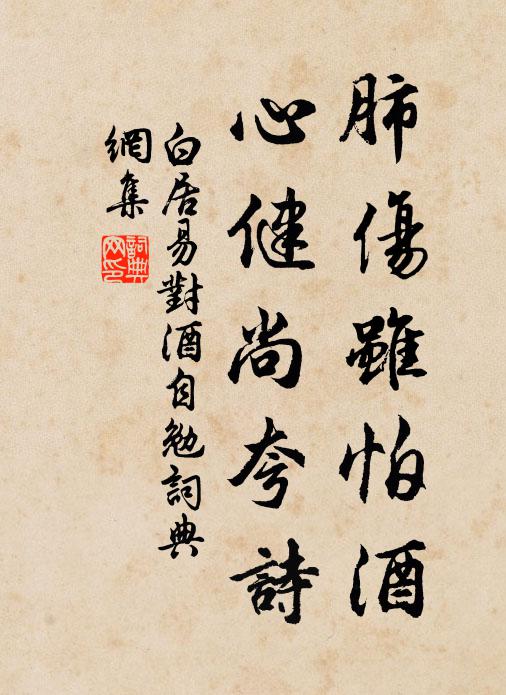 肺傷雖怕酒
心健尚夸詩
白居易對酒自勉詞典
網集
詞典
网印